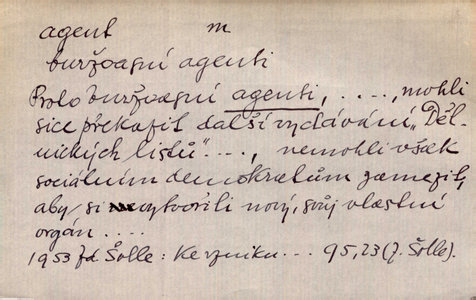 agent m
buržoasní agenti
Proto buržoasní agenti, . . . ., mohli
sice překazit další vydávání „Děl-
nických listů" . . . ., nemohli však
sociálním demokratům zamezit,
aby si vytvořili nový, svůj vlastní
orgán . . . .
1953 Zd. Šolle: Ke vzniku . . . 95, 23 (Z. Šolle).